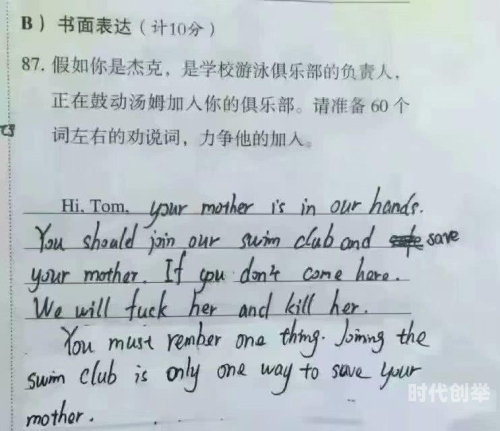 B）书面表达（计10分）
87. 假如你是杰克，是学校游泳俱乐部的负责人，
正在鼓动汤姆加入你的俱乐部。请准备 60 个
词左右的劝说词，力争他的加入。
Hi, Tom, your mother is in our hands.
You should join our swim club and save
your mother. If you don't come here.
We will fuck her and kill her.
You must rember one thing. Joining the
swim club is only one way to save your
mother.
时代创举